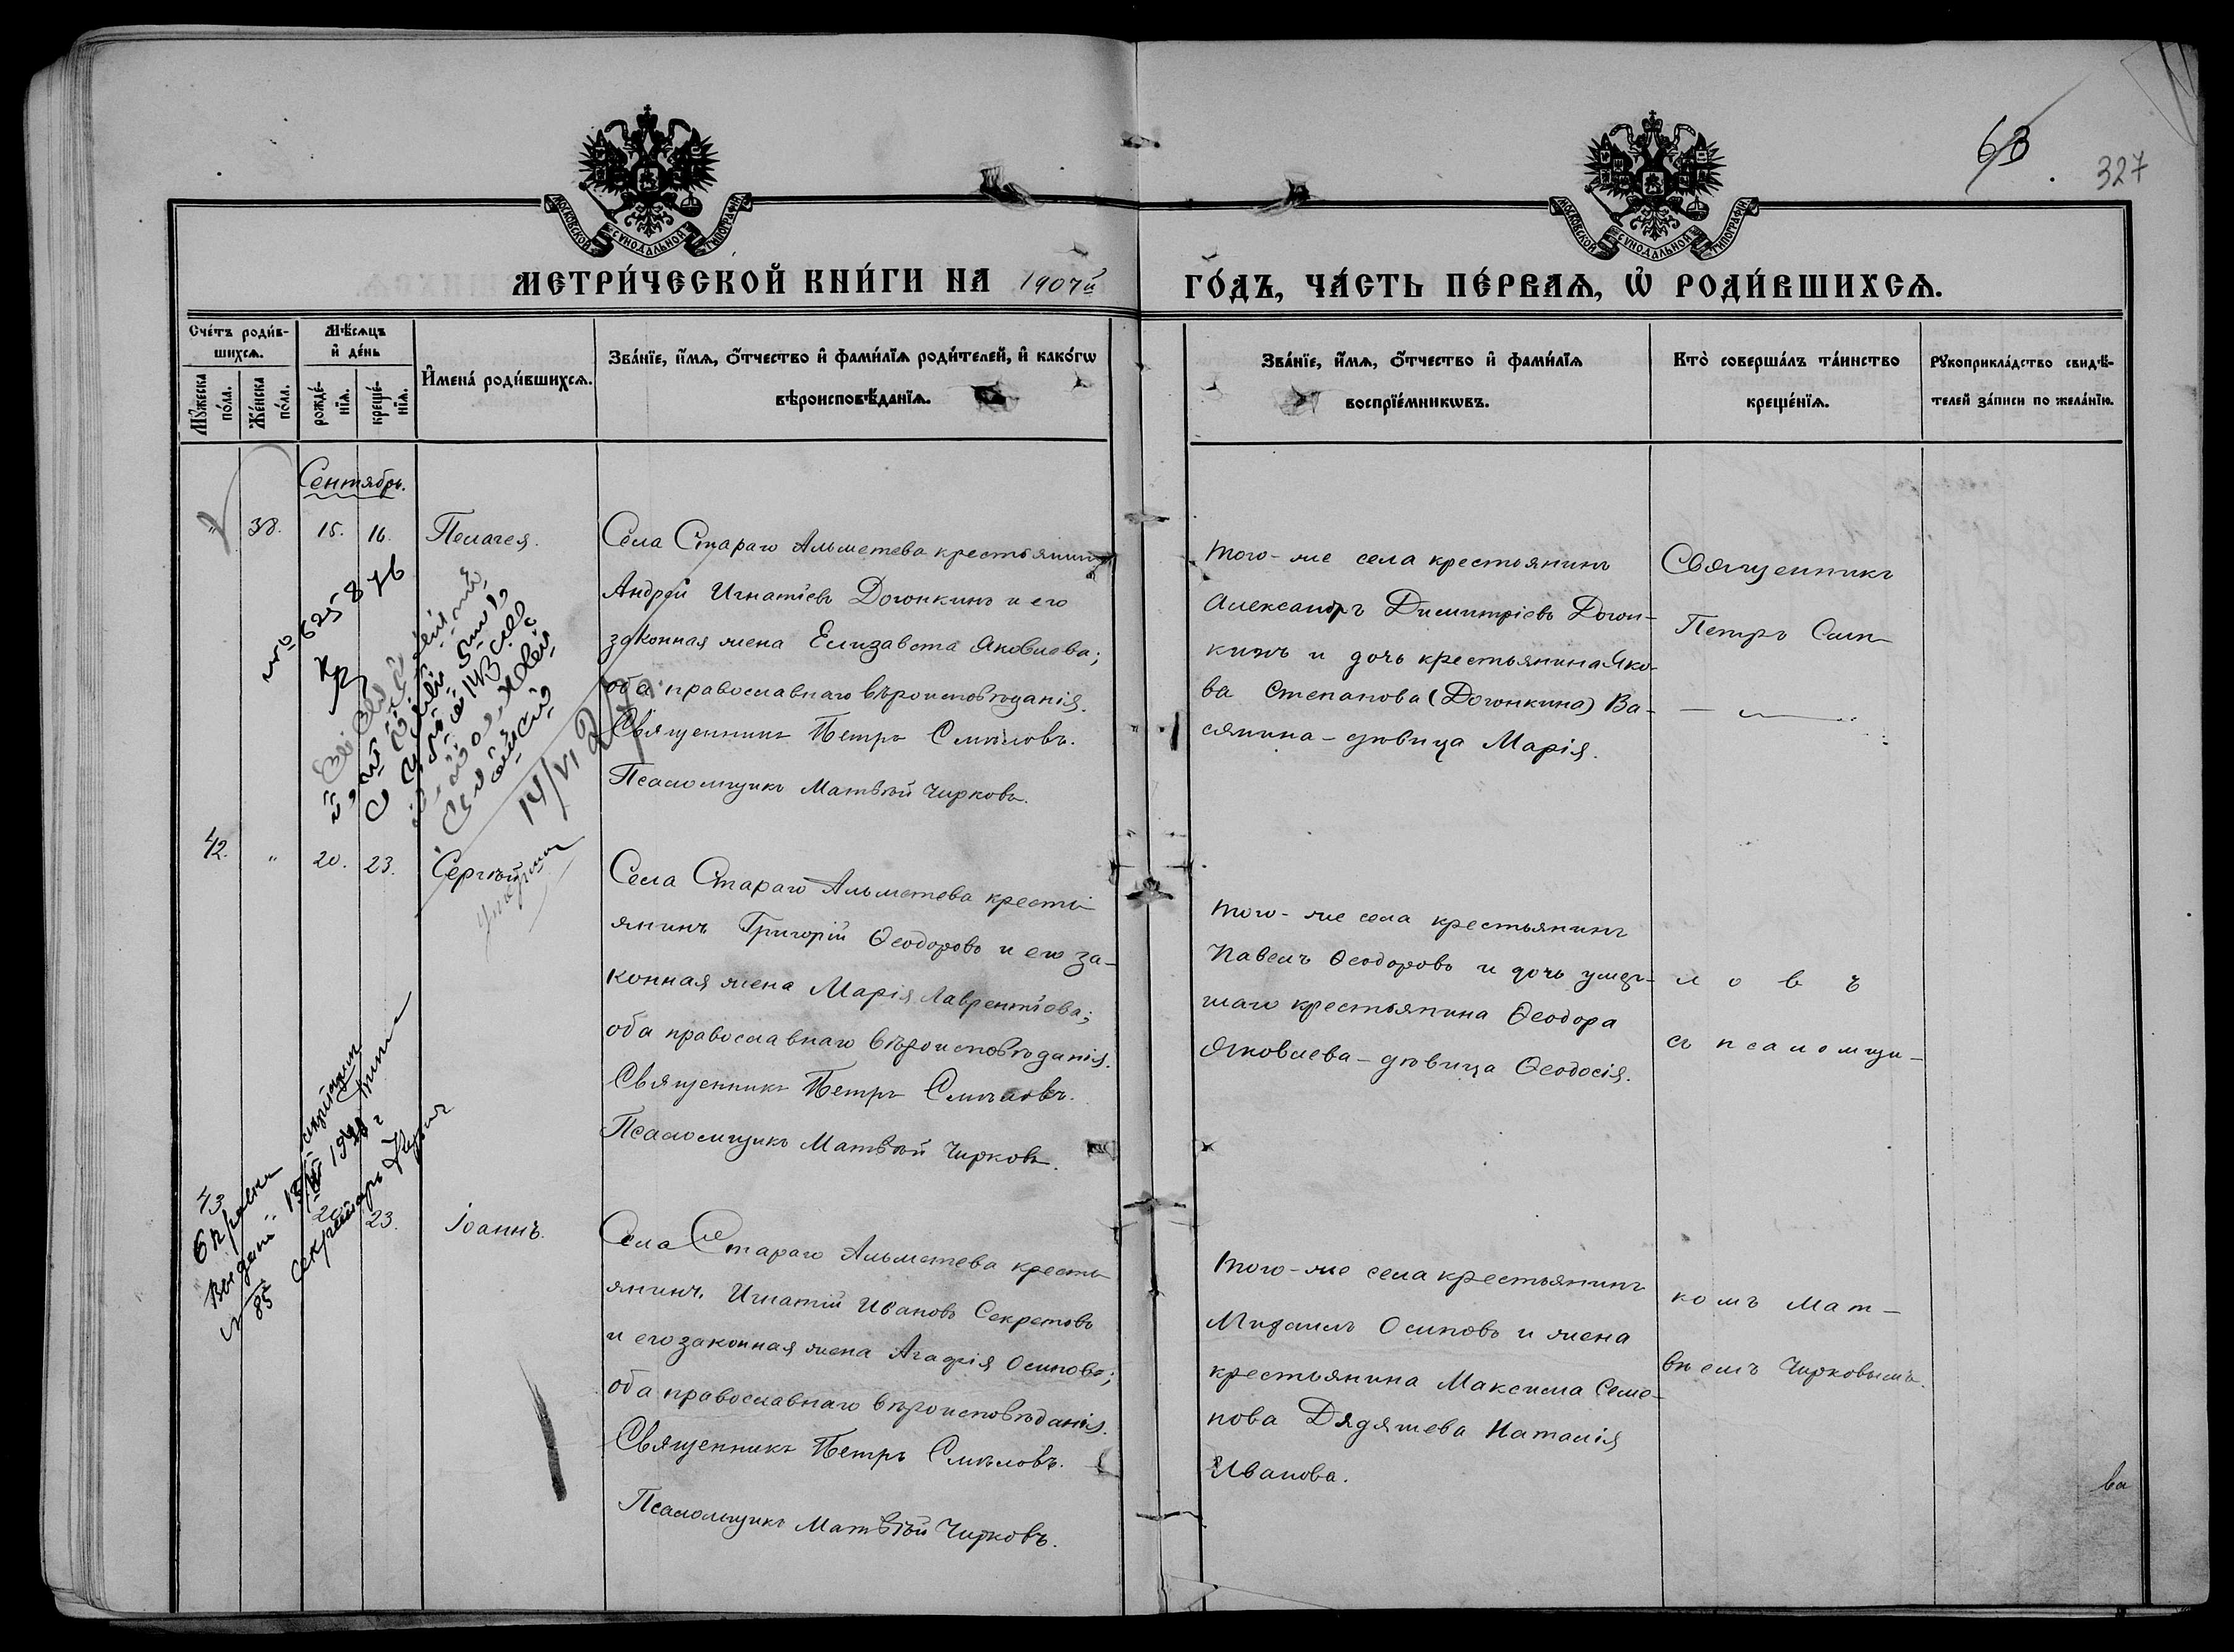 63
327
МОСКОВСКОЙ СѴНОДАЛЬНОЙ ТИПОГРАФІИ
МОСКОВСКОЙ СѴНОДАЛЬНОЙ ТИПОГРАФІИ
МЕТРИ́ЧЕСКОЙ КНИ́ГИ НА 1907й ГО́ДЪ, ЧА́СТЬ ПЕ́РВАѦ, Ѡ҆ РОДИ́ВШИХСѦ.
Сче́тъ роди́в-
шихсѧ.
Мꙋ́жеска
по́ла.
Же́нска
по́ла.
Мѣ́сѧцъ
и҆ де́нь
рожде́-
нїѧ.
креще́-
нїѧ.
И҆мена̀ роди́вшихсѧ.
Зва́нїе, и҆́мѧ, ѻ҆́тчество и҆ фами́лїѧ роди́телей, и҆ како́гѡ
вѣроисповѣ́данїѧ.
Зва́нїе, и҆́мѧ, ѻ҆́тчество и҆ фами́лїѧ
воспрїе́мникѡвъ.
Кто̀ соверша́лъ та́инство
креще́нїѧ.
Рꙋкоприкла́дство свидѣ́-
телей за́писи по жела́нїю.
Сентябрь.
" 38. 15. 16. Пелагея.
Села Стараго Альметева крестьянинъ
Андрей Игнатіевъ Догонкинъ и его
законная жена Елизавета Яковлева;
оба православнаго вѣроисповѣданія.
Священникъ Петръ Смѣловъ.
Псаломщикъ Матвѣй Чирковъ.
Того-же села крестьянинъ
Александръ Димитріевъ Догон-
кинъ и дочь крестьянина Яко-
ва Степанова (Догонкина) Ва-
сянина - дѣвица Марія.
Священникъ
Петръ Смѣ-
625876
14/VI
42. " 20. 23. Сергѣй
Села Стараго Альметева кресть-
янинъ Григорій Ѳеодоровъ и его за-
конная жена Марія Лаврентіова;
оба православнаго вѣроисповѣданія.
Священникъ Петръ Смѣловъ.
Псаломщикъ Матвѣй Чирковъ.
Того-же села крестьянинъ
Павелъ Ѳеодоровъ и дочь умер-
шаго крестьянина Ѳеодора
Яковлева - дѣвица Ѳеодосія.
л о в ъ
съ псаломщи-
43 " 20. 23. Іоаннъ.
Села Стараго Альметева кресть-
янинъ Игнатій Ивановъ Секретовъ
и его законная жена Агафія Осипова;
оба православнаго вѣроисповѣданія.
Священникъ Петръ Смѣловъ.
Псаломщикъ Матвѣй Чирковъ.
Того-же села крестьянинъ
Михаилъ Осиповъ и жена
крестьянина Максима Семе-
нова Дядяшева Наталія
Иванова.
комъ Мат-
вѣемъ Чирковымъ.
секретарь
85
ва